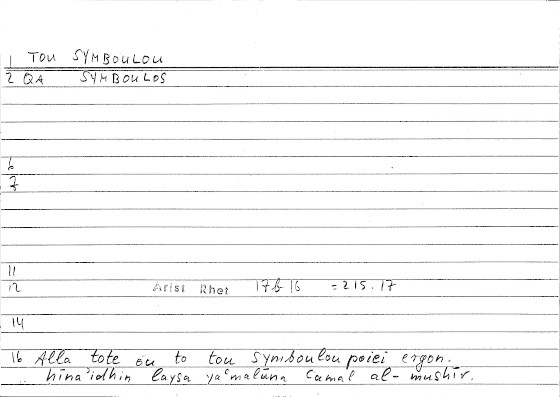 1 TOU SYMBOULOU
2 QA SYMBOULOS
6
7
11
12 Arist Rhet 17b16 =215.17
14
16 Alla tote ou to tou symboulou poiei ergon.
.. hīna'idhin laysa ya'malūna camal al-mushīr.